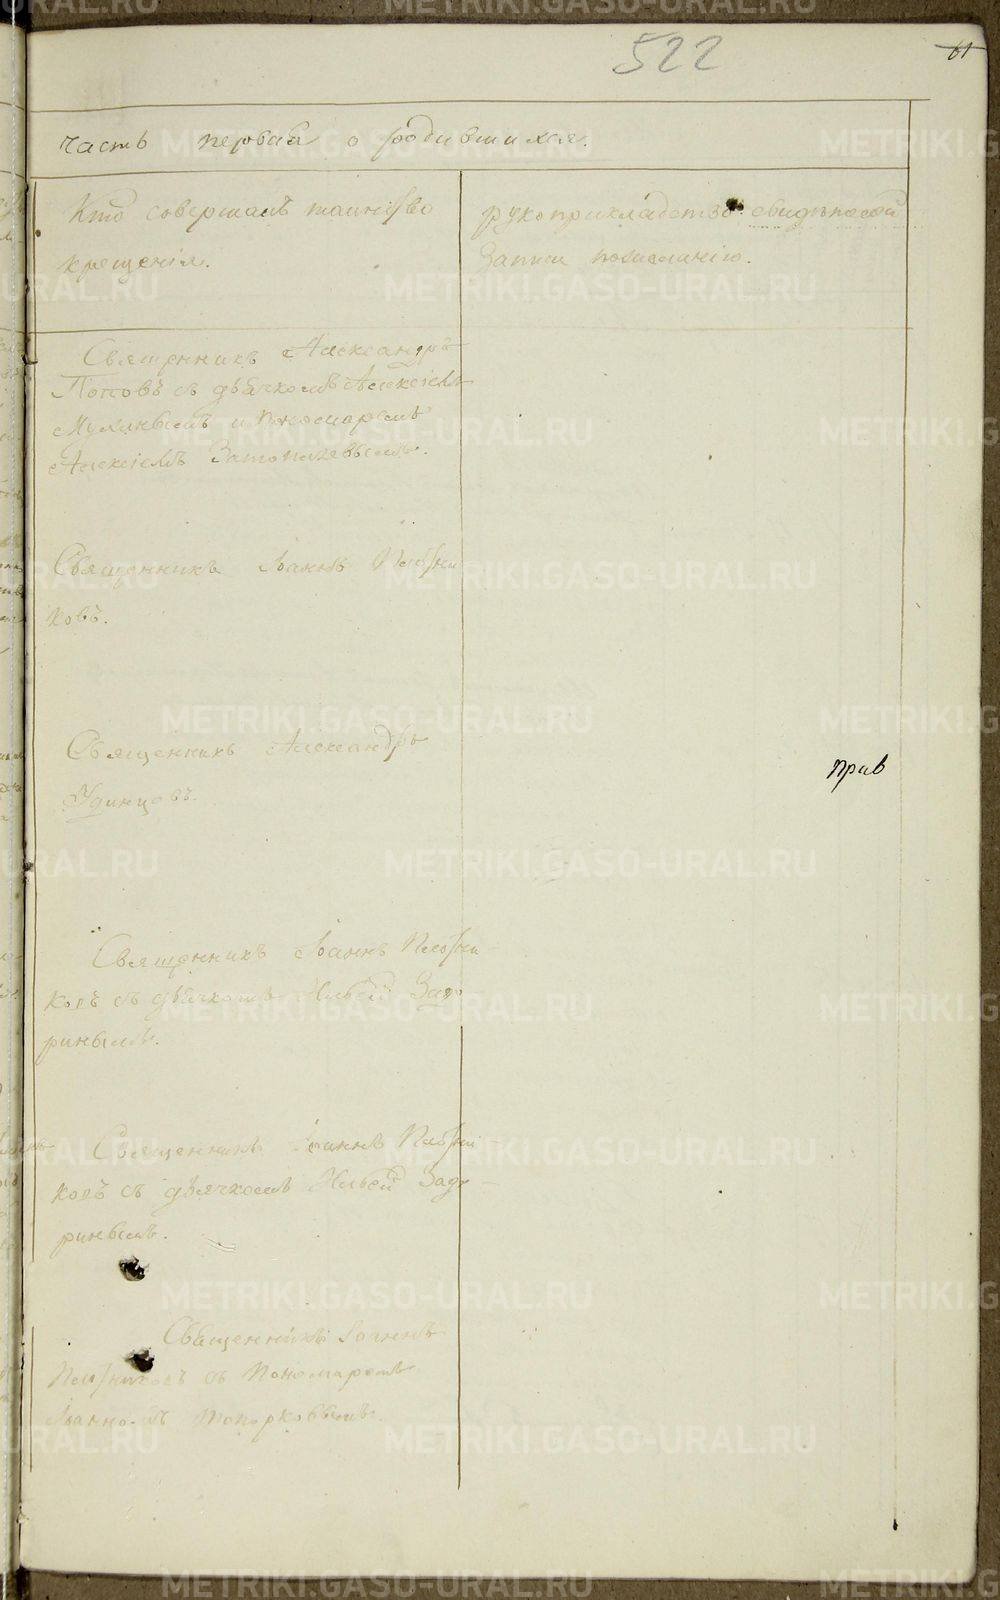 522
61
часть первая о родившихся.
Кто совершалъ таинство
крещенія.
рукоприкладство свидѣтелей
записи по желанію.
Священникъ Александръ
Поповъ съ дьячкомъ Алексіемъ
и пономаремъ
Алексіемъ
Священникъ Іоаннъ Плотни
ковъ.
Священникъ Александръ
Удинцовъ.
прив
Священникъ Іоаннъ Плотни
ковъ съ дьячкомъ Ильей Задо
ринымъ.
Священникъ Іоаннъ Плотни
ковъ съ дьячкомъ Ильей Задо
ринымъ.
Священникъ Іоаннъ
Плотниковъ съ пономаремъ
Іоанномъ Топорковымъ.
METRIKI.GASO-URAL.RU